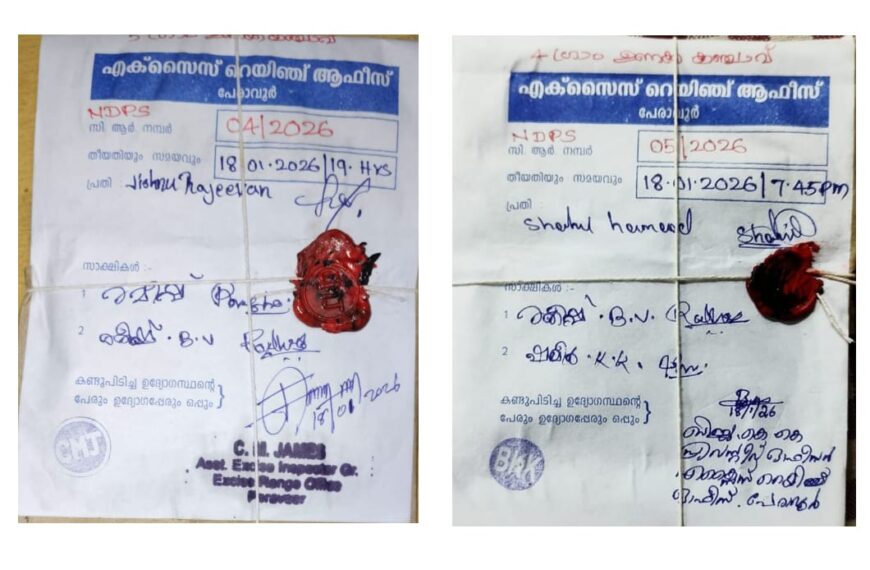 5 ഗ്രാം കഞ്ചാവ്
എക്സൈസ് റെയിഞ്ച് ആഫീസ്
പേരാവൂർ
NDPS
സി. ആർ. നമ്പർ 04/2026
തീയതിയും സമയവും 18.01.2026/19. Hrs
പ്രതി Vishnu Rajeevan
സാക്ഷികൾ :-
1
2 B.V
കണ്ടുപിടിച്ച ഉദ്യോഗസ്ഥന്റെ
പേരും ഉദ്യോഗപ്പേരും ഒപ്പും }
C. M. JAMES
Asst. Excise Inspector Gr.
Excise Range Office
Peravoor
4 ഗ്രാം ഉണക്ക കഞ്ചാവ്
എക്സൈസ് റെയിഞ്ച് ആഫീസ്
പേരാവൂർ
NDPS
സി. ആർ. നമ്പർ 05/2026
തീയതിയും സമയവും 18.01.2026/7.45pm
പ്രതി
Shahul hameed Shahul
സാക്ഷികൾ :-
1 B.V.
2 ഷമീർ. K.K.
കണ്ടുപിടിച്ച ഉദ്യോഗസ്ഥന്റെ
പേരും ഉദ്യോഗപ്പേരും ഒപ്പും }
18/1/26
ബിജു. കെ കെ
പ്രിവന്റീവ് ഓഫീസർ
എക്സൈസ് റെയിഞ്ച്
ഓഫീസ്. പേരാവൂർ